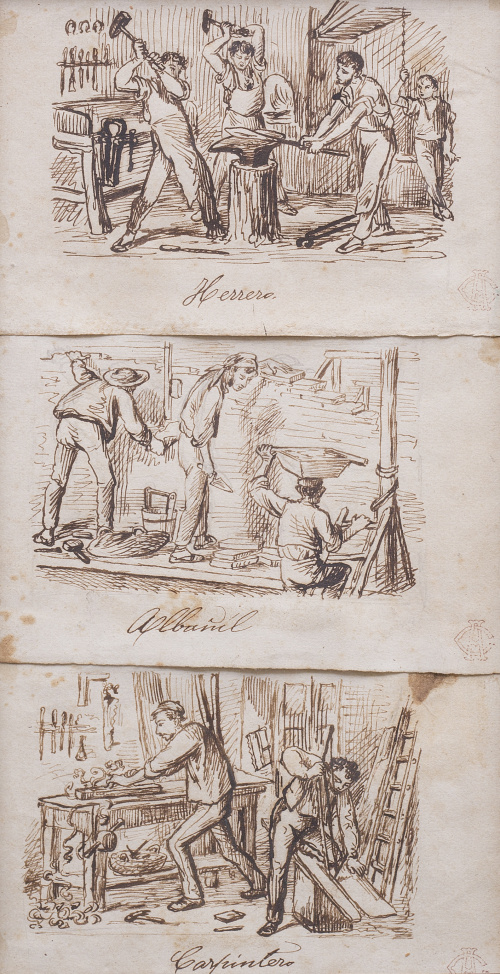 Herrero.
Albañil
Carpintero